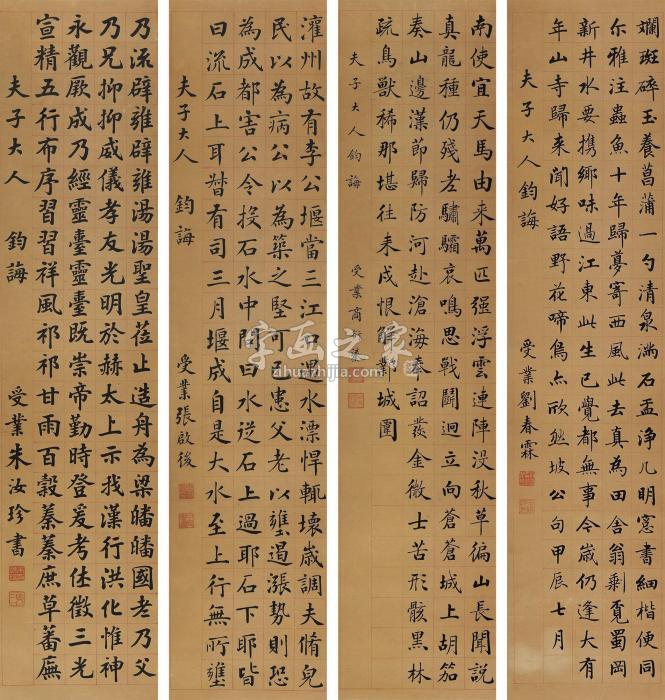 斕斑碎玉養菖蒲一勺清泉滿石盂淨几明窓書細楷便同
尒雅注蟲魚十年歸夢寄西風此去真為田舍翁剩覓蜀岡
新井水要攜鄉味過江東此生已覺都無事今歲仍逢大有
年山寺歸來聞好語野花啼鳥亦欣然坡公句甲辰七月
夫子大人鈞誨 受業劉春霖
南使宜天馬由來萬匹强浮雲連陣沒秋草徧山長聞說
真龍種仍殘老驌驦哀鳴思戰鬬迥立向蒼蒼城上胡笳
奏山邊漢節歸防河赴滄海奉詔發金微士苦形骸黑林
疏鳥獸稀那堪往來戍恨解鄴城圍
夫子大人鈞誨 受業商衍
灌州故有李公堰當三江口遇水漂悍輒壞歲調夫脩
民以為病公以為築之堅可也患父老以壅遏漲勢則恐
為成都害公令投石水中問曰水從石上過耶石下耶皆
曰流石上耳督有司三月堰成自是大水至上行無所壅
夫子大人 鈞誨 受業張啟後
乃流辟雍辟雍湯湯聖皇莅止造舟為梁皤皤國老乃父
乃兄抑抑威儀孝友光明於赫太上示我漢行洪化惟神
永觀厥成乃經靈臺靈臺既崇帝勤時登爰考休徵三光
宣精五行布序習習祥風祁祁甘雨百穀蓁蓁庶草蕃廡
夫子大人 鈞誨 受業朱汝珍書
字画之家
zihuazhijia.com